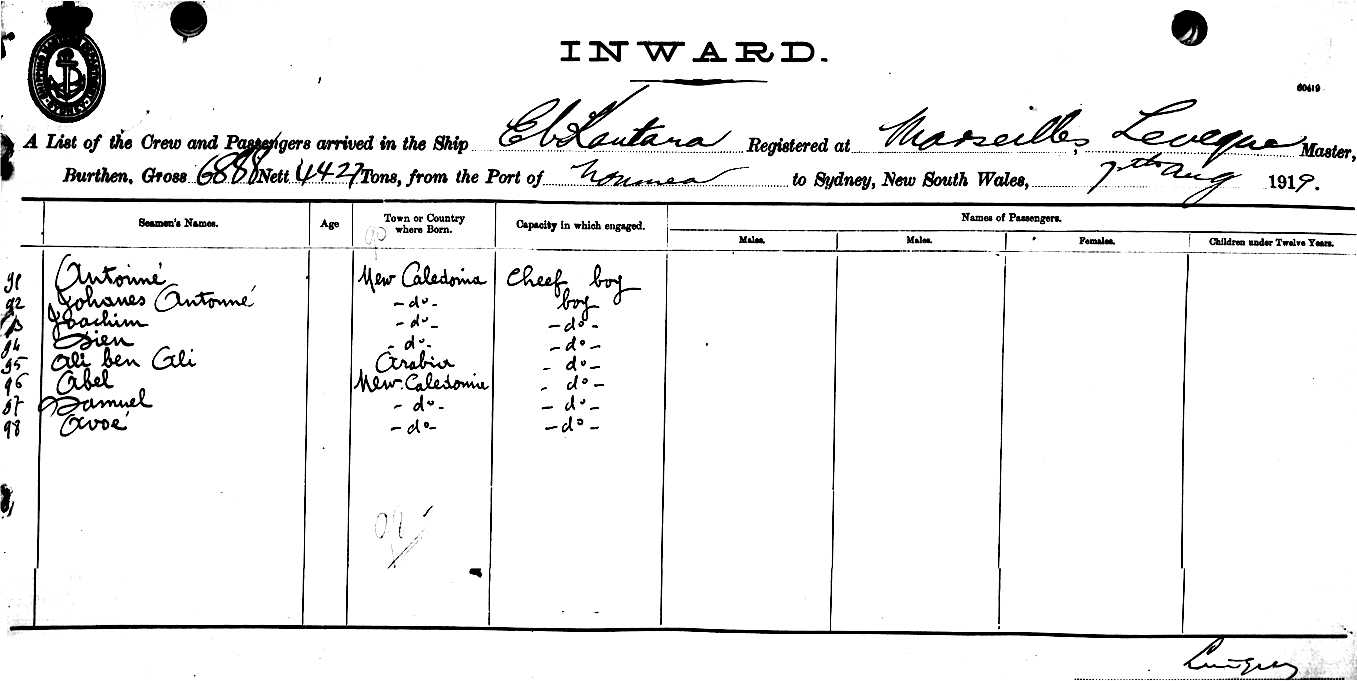 INWARD.
60419
A List of the Crew and Passengers arrived in the Ship El Kantara Registered at Marseilles, Leveque Master,
Burthen, Gross 6888 Nett 4427 Tons, from the Port of Noumea to Sydney, New South Wales, 7th Aug 1919.
Seamen's Names. Age Town or Country where Born. Capacity in which engaged. Names of Passengers.
Males. Males. Females. Children under Twelve Years.
90
91 Antonné New Caledonia Cheef boy
92 Johanes Antonné -do- boy
93 Joachim -do- -do-
94 Sien -do- -do-
95 Ali ben Ali Arabia -do-
96 Abel New-Caledonia -do-
97 Samuel -do- -do-
98 Avoé -do- -do-